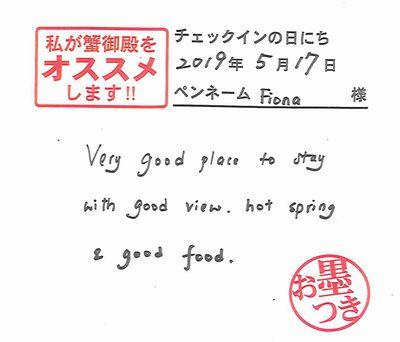 私が蟹御殿を
オススメ
します!!
チェックインの日にち
2019年 5月17日
ペンネーム Fiona 様
Very good place to stay
with good view. hot spring
& good food.
お墨
つき